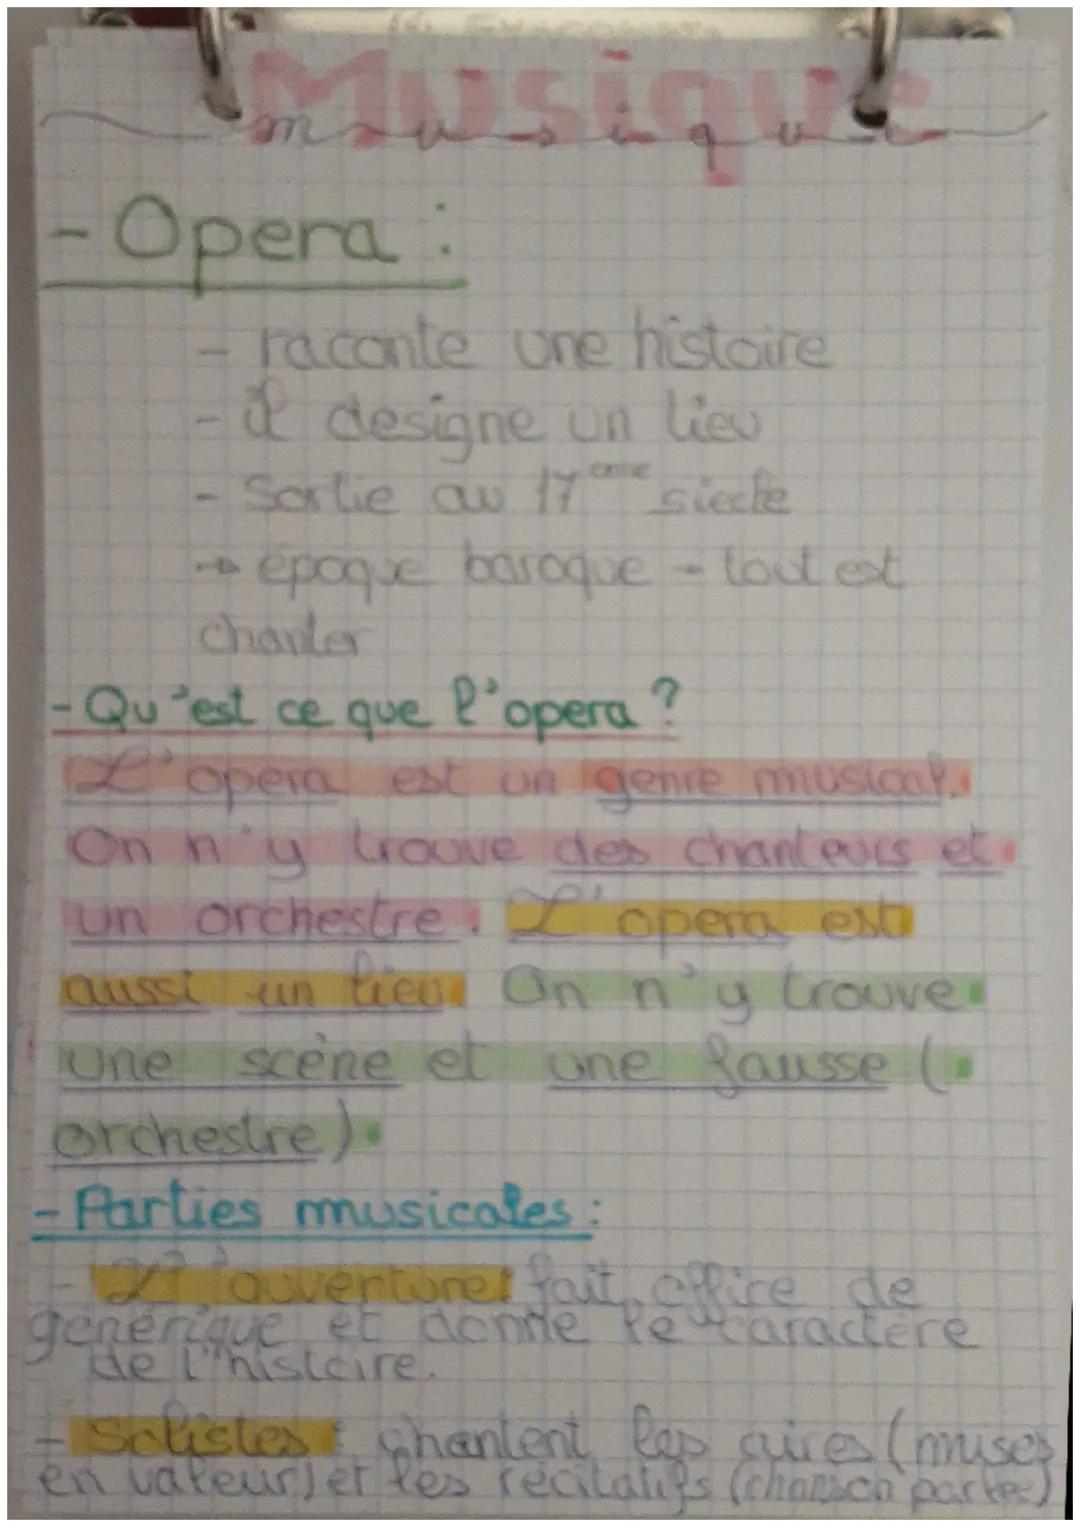 Musique
musique
- Opera :
- raconte une histoire
- designe un lieu
- Sortie au 17ème siecle
→ epoque baroque - tout est
chanter
- Qu'est ce que l'opera ?
L'opera est un genre musical.
On n'y trouve des chanteurs et
un orchestre. L'opera est
aussi un lieu. On n'y trouve
une scène et une fausse (
orchestre).
- Parties musicales :
- L'ouverture : fait office de
générique et donne le caractère
de l'histoire.
- Solistes : chantent les aires (mises
en valeur) et les récitatifs (chanson parlee)